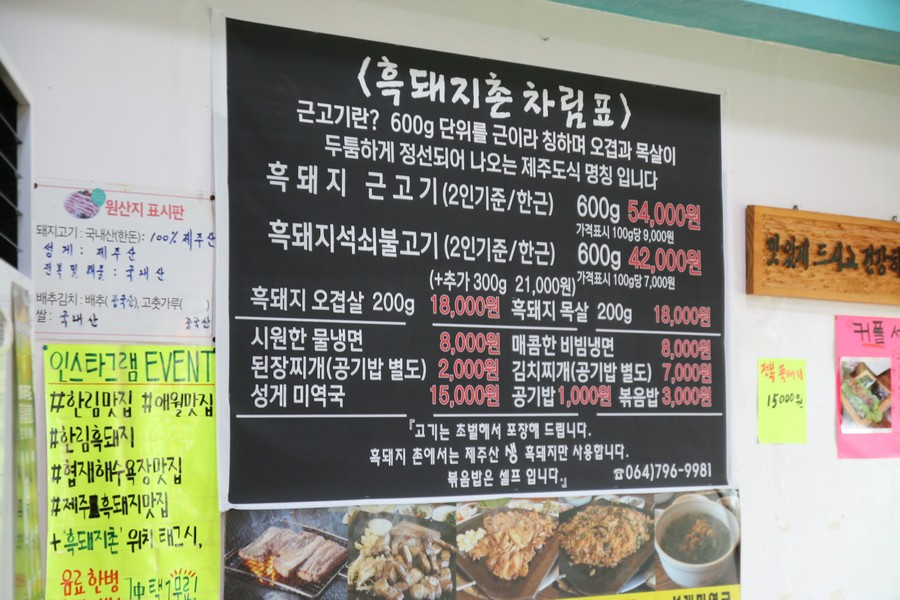 〈흑돼지촌 차림표〉
근고기란? 600g 단위를 근이라 칭하며 오겹과 목살이
두툼하게 정선되어 나오는 제주도식 명칭 입니다
흑돼지 근고기 (2인기준/한근) 600g 54,000원
가격표시 100g당 9,000원
흑돼지석쇠불고기 (2인기준/한근) 600g 42,000원
(+추가 300g 21,000원) 가격표시 100g당 7,000원
흑돼지 오겹살 200g 18,000원 흑돼지 목살 200g 18,000원
시원한 물냉면 8,000원 매콤한 비빔냉면 8,000원
된장찌개(공기밥 별도) 2,000원 김치찌개(공기밥 별도) 7,000원
성게 미역국 15,000원 공기밥 1,000원 볶음밥 3,000원
『고기는 초벌해서 포장해 드립니다.
흑돼지 촌에서는 제주산 생 흑돼지만 사용합니다.
볶음밥은 셀프 입니다.』 ☎064)796-9981
원산지 표시판
돼지고기 : 국내산(한돈) : 100% 제주산
성게 : 제주산
전복 및 해물 : 국내산
배추김치 : 배추(중국산), 고춧가루( )
쌀 : 국내산 중국산
인스타그램 EVENT
#한림맛집 #애월맛집
#한림흑돼지
#협재해수욕장맛집
#제주흑돼지맛집
+'흑돼지촌' 위치 태그시,
음료 한병 中 택1 무료!
맛있게 드시고 건강하
전복 뚝배기
15000원
커플 
성게미역국